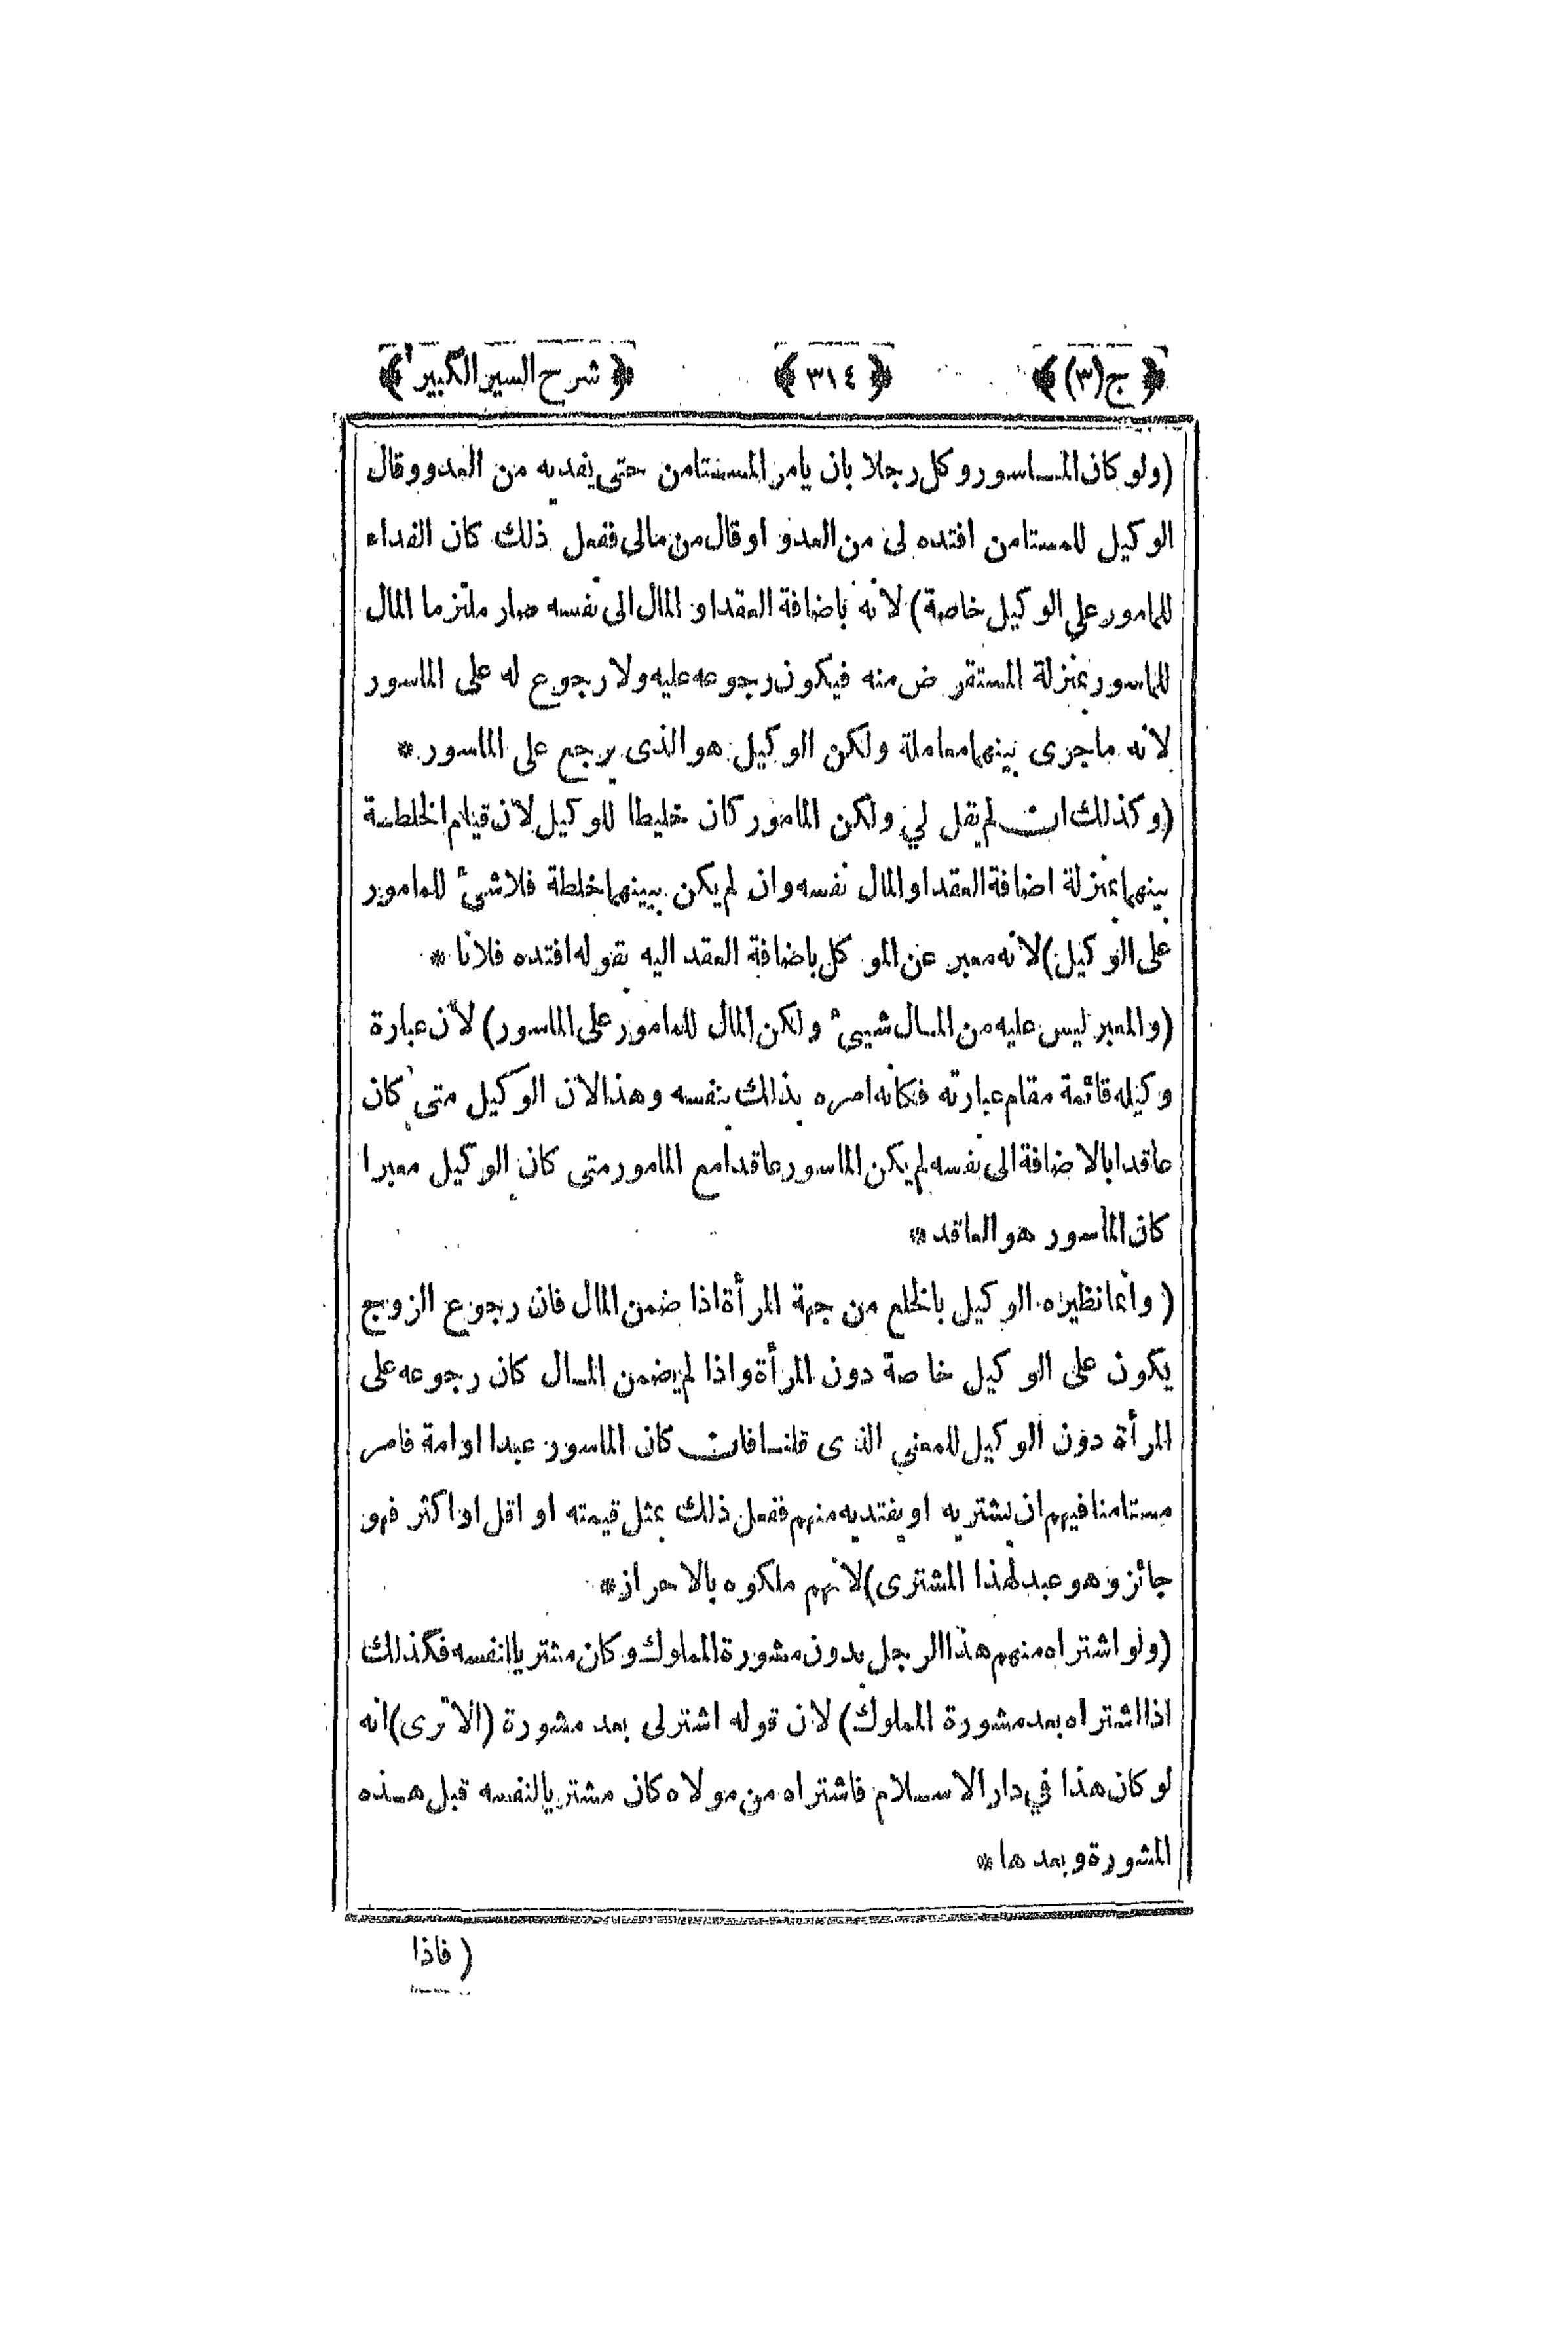 ﴿ ج (٣) ﴾ ﴿ ٣١٤ ﴾ ﴿ شرح السير الكبير ﴾
(ولو كان الماسور وكل رجلا بان يامر المستامن حتى يفديه من العدو وقال
الوكيل للمستامن افتده لى من العدو او قال من مالى ففعل ذلك كان الفداء
للمامور على الوكيل خاصة) لانه باضافة العقد او المال الى نفسه صار ملتزما المال
للماسور بمنزلة المستقرض منه فيكون رجوعه عليه ولا رجوع له على الماسور
لانه ما جرى بينهما معاملة ولكن الوكيل هو الذى يرجع على الماسور *
(وكذلك ان لم يقل لي ولكن المامور كان خليطا للوكيل لان قيام الخلطة
بينهما بمنزلة اضافة العقد او المال نفسه وان لم يكن بينهما خلطة فلا شئ للمامور
على الوكيل) لانه معبر عن الموكل باضافة العقد اليه بقوله افتده فلانا *
(والمعبر ليس عليه من المال شيئ ولكن المال للمامور على الماسور) لان عبارة
وكيله قائمة مقام عبارته فكانه امره بذلك بنفسه وهذا لان الوكيل متى كان
عاقدا بالاضافة الى نفسه لم يكن الماسور عاقدا مع المامور متى كان الوكيل معبرا
كان المأسور هو العاقد *
(وانما نظيره الوكيل بالخلع من جهة المرأة اذا ضمن المال فان رجوع الزوج
يكون على الوكيل خاصة دون المرأة واذا لم يضمن المال كان رجوعه على
المرأة دون الوكيل للمعنى الذى قلنا فان كان الماسور عبدا او امة فامر
مستامنا فيهم ان يشتريه او يفتديه منهم ففعل ذلك بمثل قيمته او اقل او اكثر فهو
جائز وهو عبد لهذا المشترى) لانهم ملكوه بالاحراز *
(ولو اشتراه منهم هذا الرجل بدون مشورة المملوك وكان مشتريا لنفسه فكذلك
اذا اشتراه بعد مشورة المملوك) لان قوله اشتر لى بعد مشورة (الا ترى) انه
لو كان هذا في دار الاسلام فاشتراه من مولاه كان مشتريا لنفسه قبل هذه
المشورة وبعدها *
(فاذا